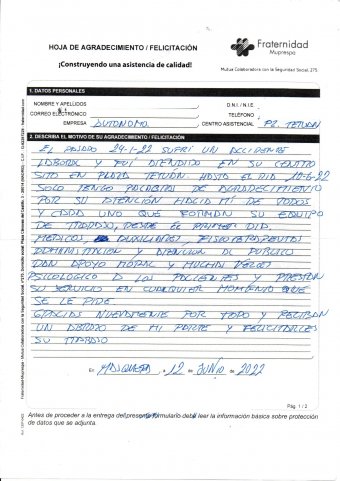 HOJA DE AGRADECIMIENTO / FELICITACIÓN
Fraternidad
Muprespa
¡Construyendo una asistencia de calidad!
Mutua Colaboradora con la Seguridad Social, 275
1. DATOS PERSONALES
NOMBRE Y APELLIDOS
D.N.I./ N.I.E.
CORREO ELECTRÓNICO
TELÉFONO
EMPRESA AUTONOMO
CENTRO ASISTENCIAL PZ. TETUAN
2. DESCRIBA EL MOTIVO DE SU AGRADECIMIENTO / FELICITACIÓN
EL PASADO 29-1-22 SUFRI UN ACCIDENTE
LABORAL Y FUI ATENDIDO EN SU CENTRO
SITO EN PLAZA TETUÁN. HASTA EL DIA 10-6-22
SOLO TENGO PALABRAS DE AGRADECIMIENTO
POR SU ATENCIÓN HACIA MI DE TODOS
Y CADA UNO QUE FORMAN SU EQUIPO
DE TRABAJO, DESDE EL PRIMER DIA.
MEDICOS, AUXILIARES, FISIOTERAPEUTAS
ADMINISTRACION Y ATENCION AL PUBLICO
DAN APOYO MORAL Y MUCHAS VECES
PSICOLOGICO A LOS PACIENTES Y PRESTAN
SU SERVICIO EN CUALQUIER MOMENTO QUE
SE LE PIDE.
GRACIAS NUEVAMENTE POR TODO Y RECIBAN
UN ABRAZO DE MI PARTE Y FELICITARLES
SU TRABAJO
En a 12 de JUNIO de 2022
Pág. 1 / 2
Antes de proceder a la entrega del presente formulario debe leer la información básica sobre protección
de datos que se adjunta.